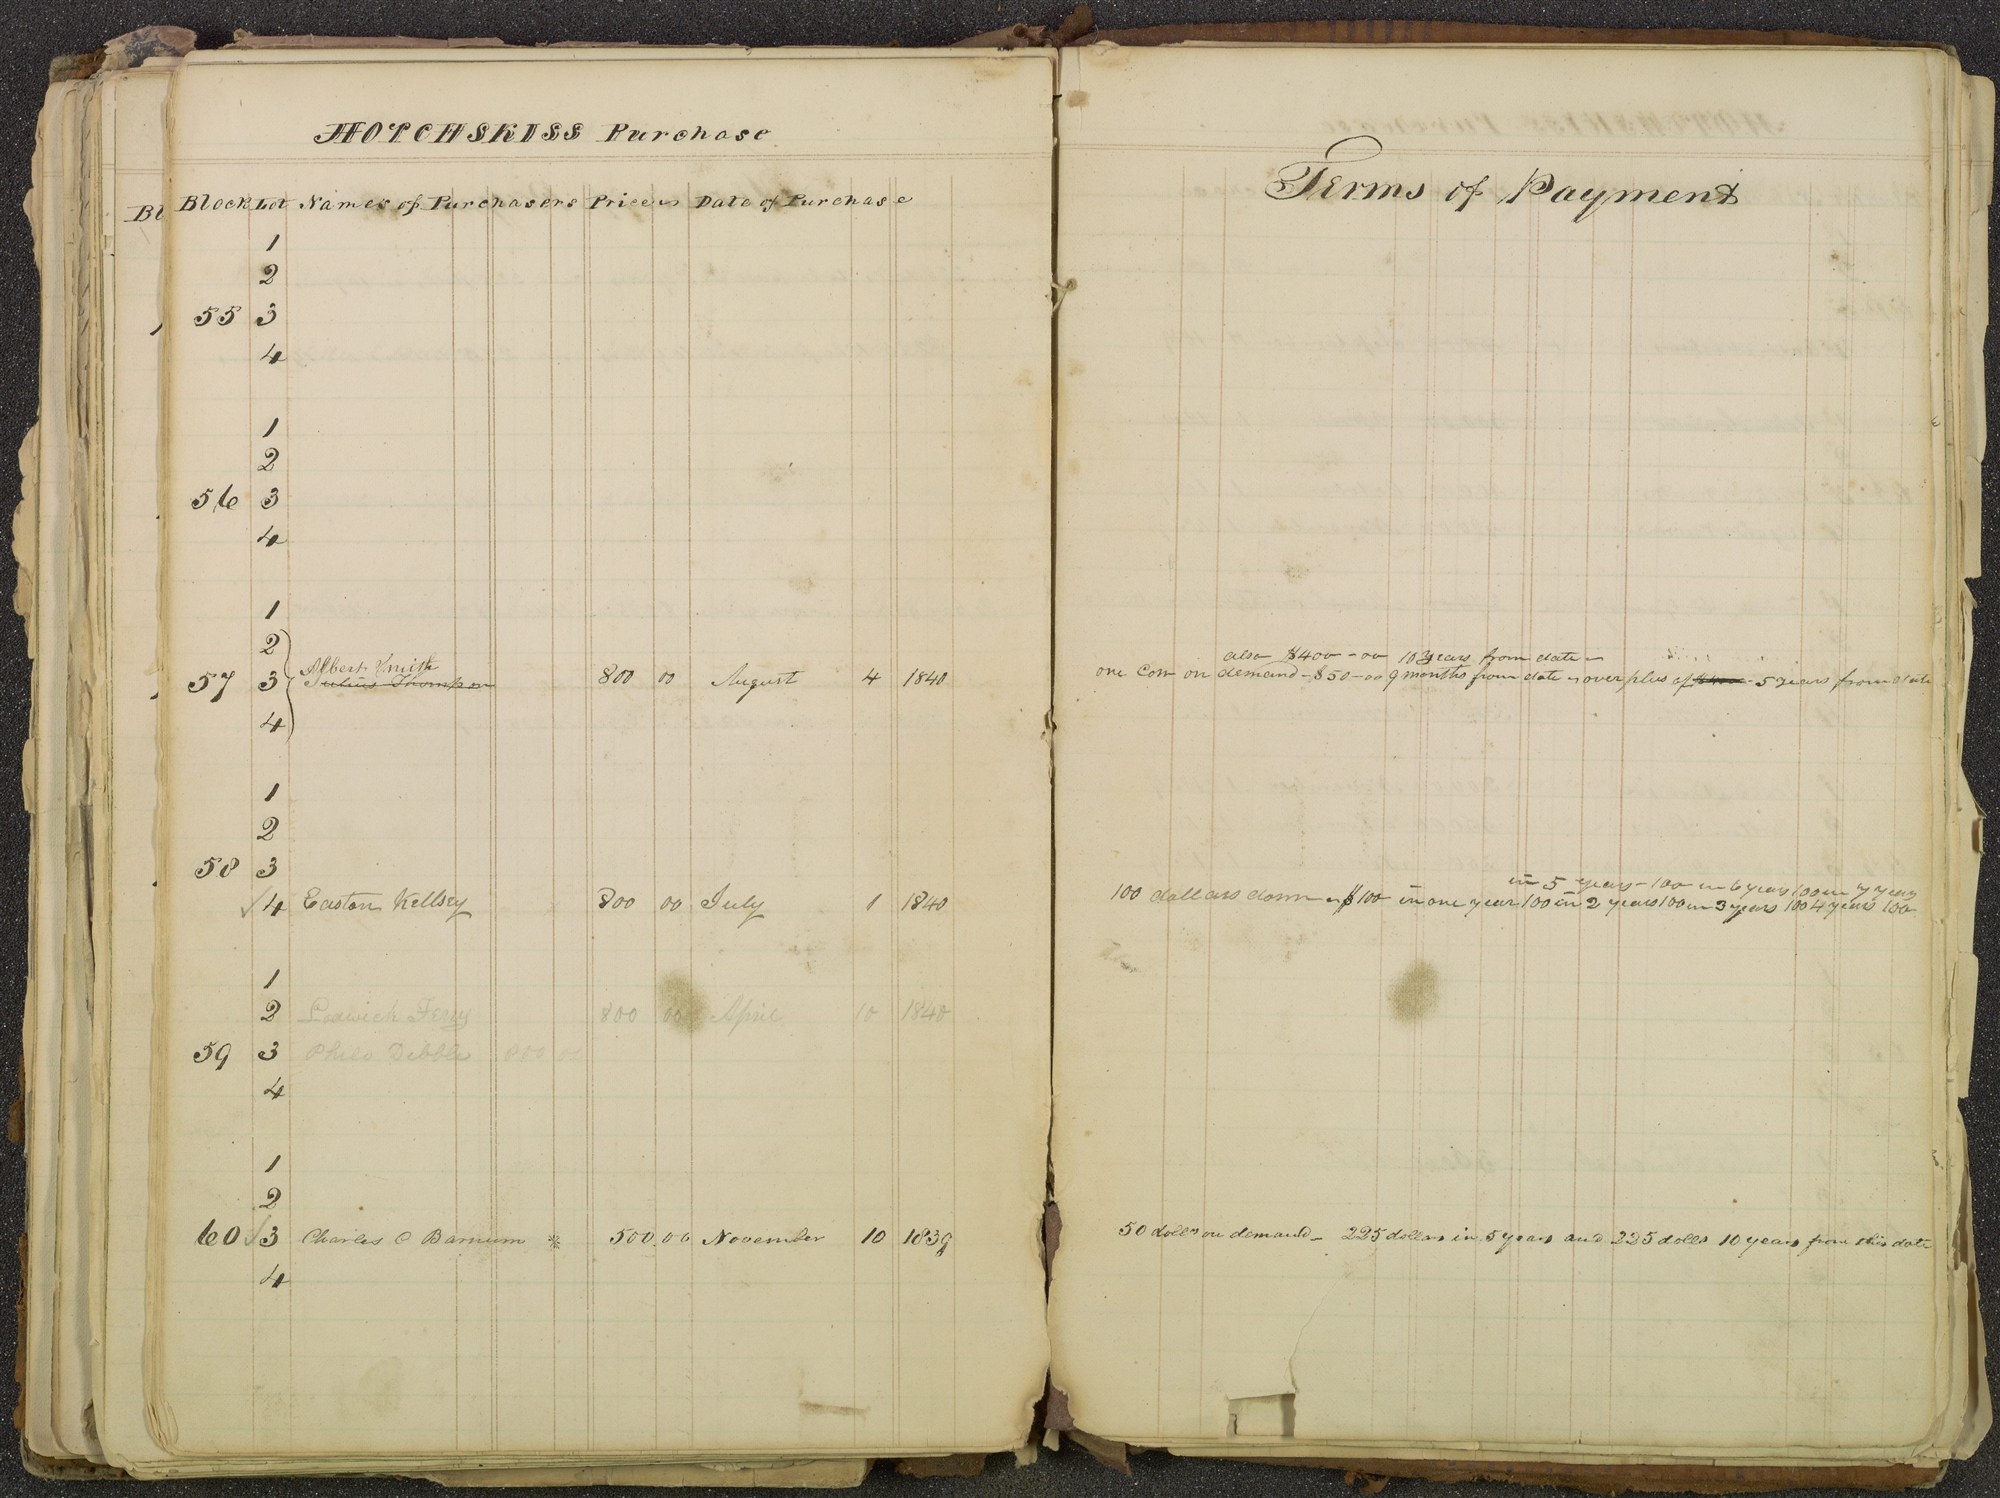 HOTCHSKISS Purchase
Block Lot Names of Purchasers Price Date of Purchase
Bl
1
2
55 3
4
1
2
56 3
4
1
2
Albert Knight
57 3 Julius Thompson 800 00 August 4 1840
4
1
2
58 3
4 Easton Kellsey 800 00 July 1 1840
1
2 Lodwick Ferry 800 00 April 10 1840
59 3 Philo Dibble 800 00
4
1
2
60 3 Charles C Barnum * 500 00 November 10 1839
4
Terms of Payment
also $400-00 10 years from date
one Cow on demand - $50-00 9 months from date over plus of 5 years from date
in 5 years - 100 in 6 years 100 in 7 years
100 dollars down $100 in one year 100 in 2 years 100 in 3 years 100 4 years 100
50 dolls on demand - 225 dollars in 5 years and 225 dolls 10 years from this date